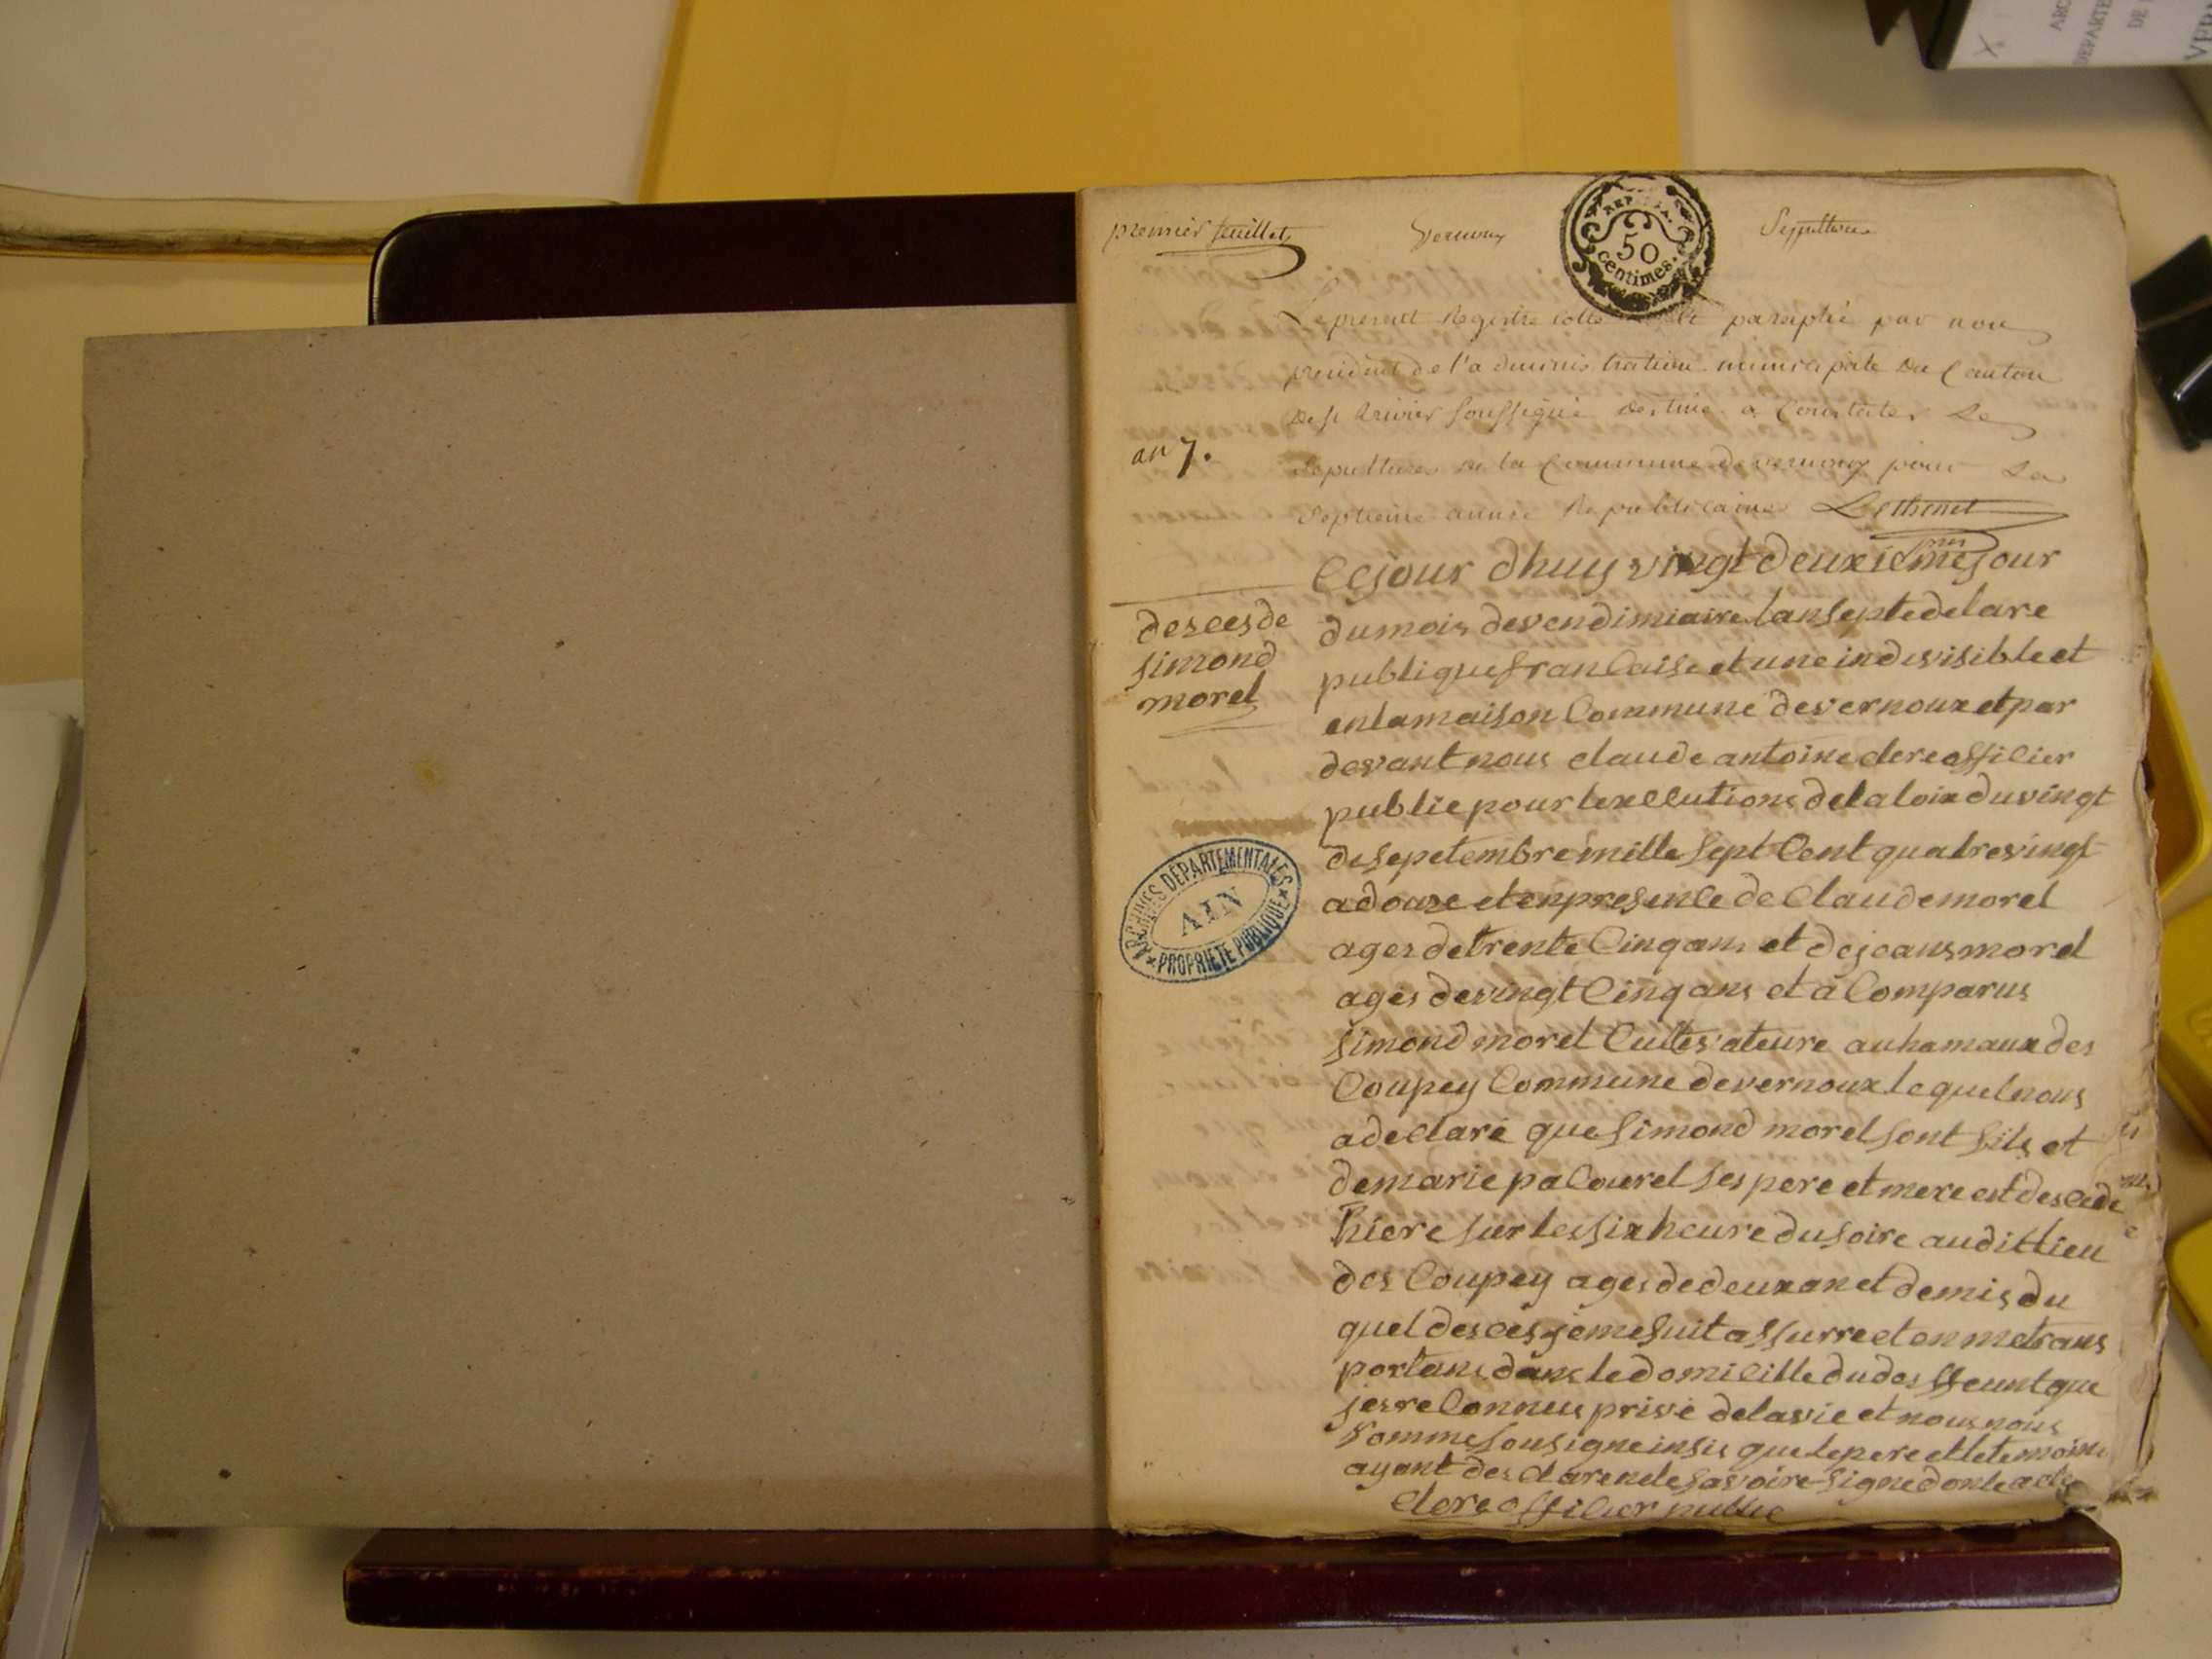 premier feuillet
Vernoux
REP. FRA.
50
centimes.
Sepulture
Le present Registre cotté et paraphé par nous
president de l'administration municipale du Canton
de st trivier soussigné destiné a Constater Les
sepultures de la Commune de vernoux pour La
septieme année Republicaine Lethenet
an 7.
Cejour dhuy vingt deuxiémejour
dumois devendimiaire lanseptedelare
publiquefrancaise et uneindesisibleet
enlamaison Commune devernouxetpar
devantnous claude antoine clereoffilier
publie pourlexellutions delaloix duvingt
desepetembre mille sept Cent quatrevingt
adouze etenpresenle de Claudemorel
ages detrente Cinqans et dejeansmorel
ages devingt Cinq ans et a Comparus
simond morel Cultesateure auhamaux des
Coupey Commune devernoux lequelnous
adeclaré que simond morel sont fils et
demarie paCourel ses pere et mere est descede
hiere surlessixheure dusoire audittlieu
des Coupey ages dedeuxanet demis du
quel desces jemesuitassurreetenmetrans
portans dans ledomicille dudesffeuntque
jesreConneus privé delavie et nousnous
somme sousigneinsis quelepereetletemoins
ayant desclarenelesavoire signedontacte
clere offilier public
deseesde
simond
morel
ARCHIVES DÉPARTEMENTALES
AIN
PROPRIÉTÉ PUBLIQUE